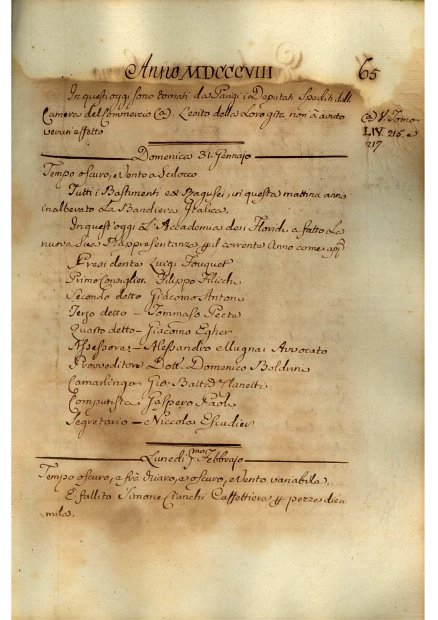 Anno MDCCCVIII 65
In questi oggi sono tornati da Parigi i Deputati Spediti dalla
Camera del Commercio (a). L'esito della Loro gita non à avuto
verun effetto
(a) V. Tomo
LIV. 215 e
217
Domenica 31 Gennaro
Tempo oscuro, e Vento a Scilocco
Tutti i Bastimenti ex Ragusei, in questa mattina anno
inalberato La Bandiera Italica.
In quest'oggi L'Accademia dei Floridi a fatto La
nuova Sua Rappresentanza il corrente Anno come
Presidente Luigi Fouquet
Primo Consiglier Filippo Filicchi
Secondo detto Giacomo Antoni
Terzo detto – Tommaso Pecte
Quarto detto – Giacomo Egher
Assessore – Alessandro Mugnai Avvocato
Provveditore Dott. Domenico Baldrini
Camarlingo – Gio: Batta Planetti
Computista Gaspero Paoli
Segretario – Niccolò Escudier
Lunedi Pmo Febbrajo
Tempo oscuro, e frà chiaro, e oscuro, e Vento variabile
È fallito Simone Bianchi Caffettiere pezze dieci
mila.